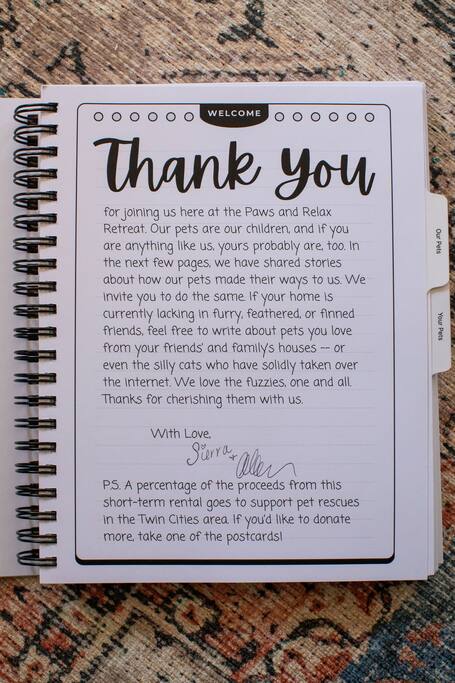 WELCOME
Thank You
for joining us here at the Paws and Relax
Retreat. Our pets are our children, and if you
are anything like us, yours probably are, too. In
the next few pages, we have shared stories
about how our pets made their ways to us. We
invite you to do the same. If your home is
currently lacking in furry, feathered, or finned
friends, feel free to write about pets you love
from your friends' and family's houses -- or
even the silly cats who have solidly taken over
the internet. We love the fuzzies, one and all.
Thanks for cherishing them with us.
With Love,
Sierra +
P.S. A percentage of the proceeds from this
short-term rental goes to support pet rescues
in the Twin Cities area. If you'd like to donate
more, take one of the postcards!
Our Pets
Your Pets